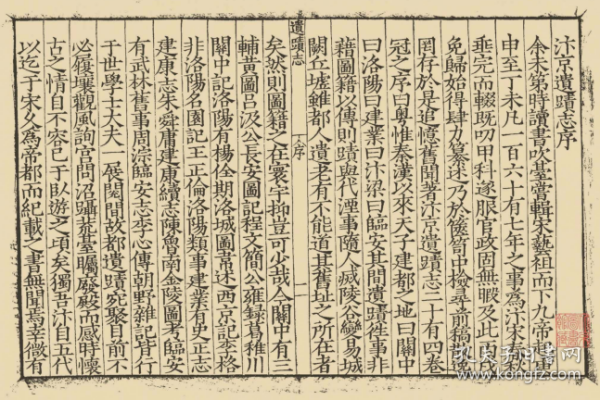 汴京遺蹟志序
余未第時讀書吹臺嘗輯宋藝祖而下九帝起
申至丁未凡一百六十有七年之事為汴宋春秋
垂完而輟既叨甲科遂服官政固無暇及此
免歸始得肆力纂述乃於篋笥中檢尋前稿
罔存於是追憶舊聞著汴京遺蹟志二十有四卷
冠之序曰粵惟秦漢以來天子建都之地曰關中
曰洛陽曰建業曰汴梁曰臨安其間遺蹟徃事非
藉圖籍以傳則蹟與代湮事隨人滅陵谷變易城
闕丘墟雖都人遺老有不能道其舊址之所在者
遺蹟志
序
一
矣然則圖籍之在寰宇抑豈可少哉今關中有三
輔黃圖呂汲公長安圖記程文簡公雍錄葛稚川
關中記洛陽有楊佺期洛城圖韋述西京記李格
非洛陽名園記王正倫洛陽類事建業有史正志
建康志朱舜庸建康續志陳魯南金陵圖考臨安
有武林舊事周淙臨安志李心傳朝野雜記皆行
于世學士大夫一展閱間故都遺蹟宛聚目前不
必履壤觀風詢宫問沼躡荒臺矚廢殿而感時懷
古之情自不容已于臥遊之頃矣獨吾汴自五代
以迄于宋久為帝都而紀載之書無聞焉若微有
孔夫子旧书网
www.kongfz.com